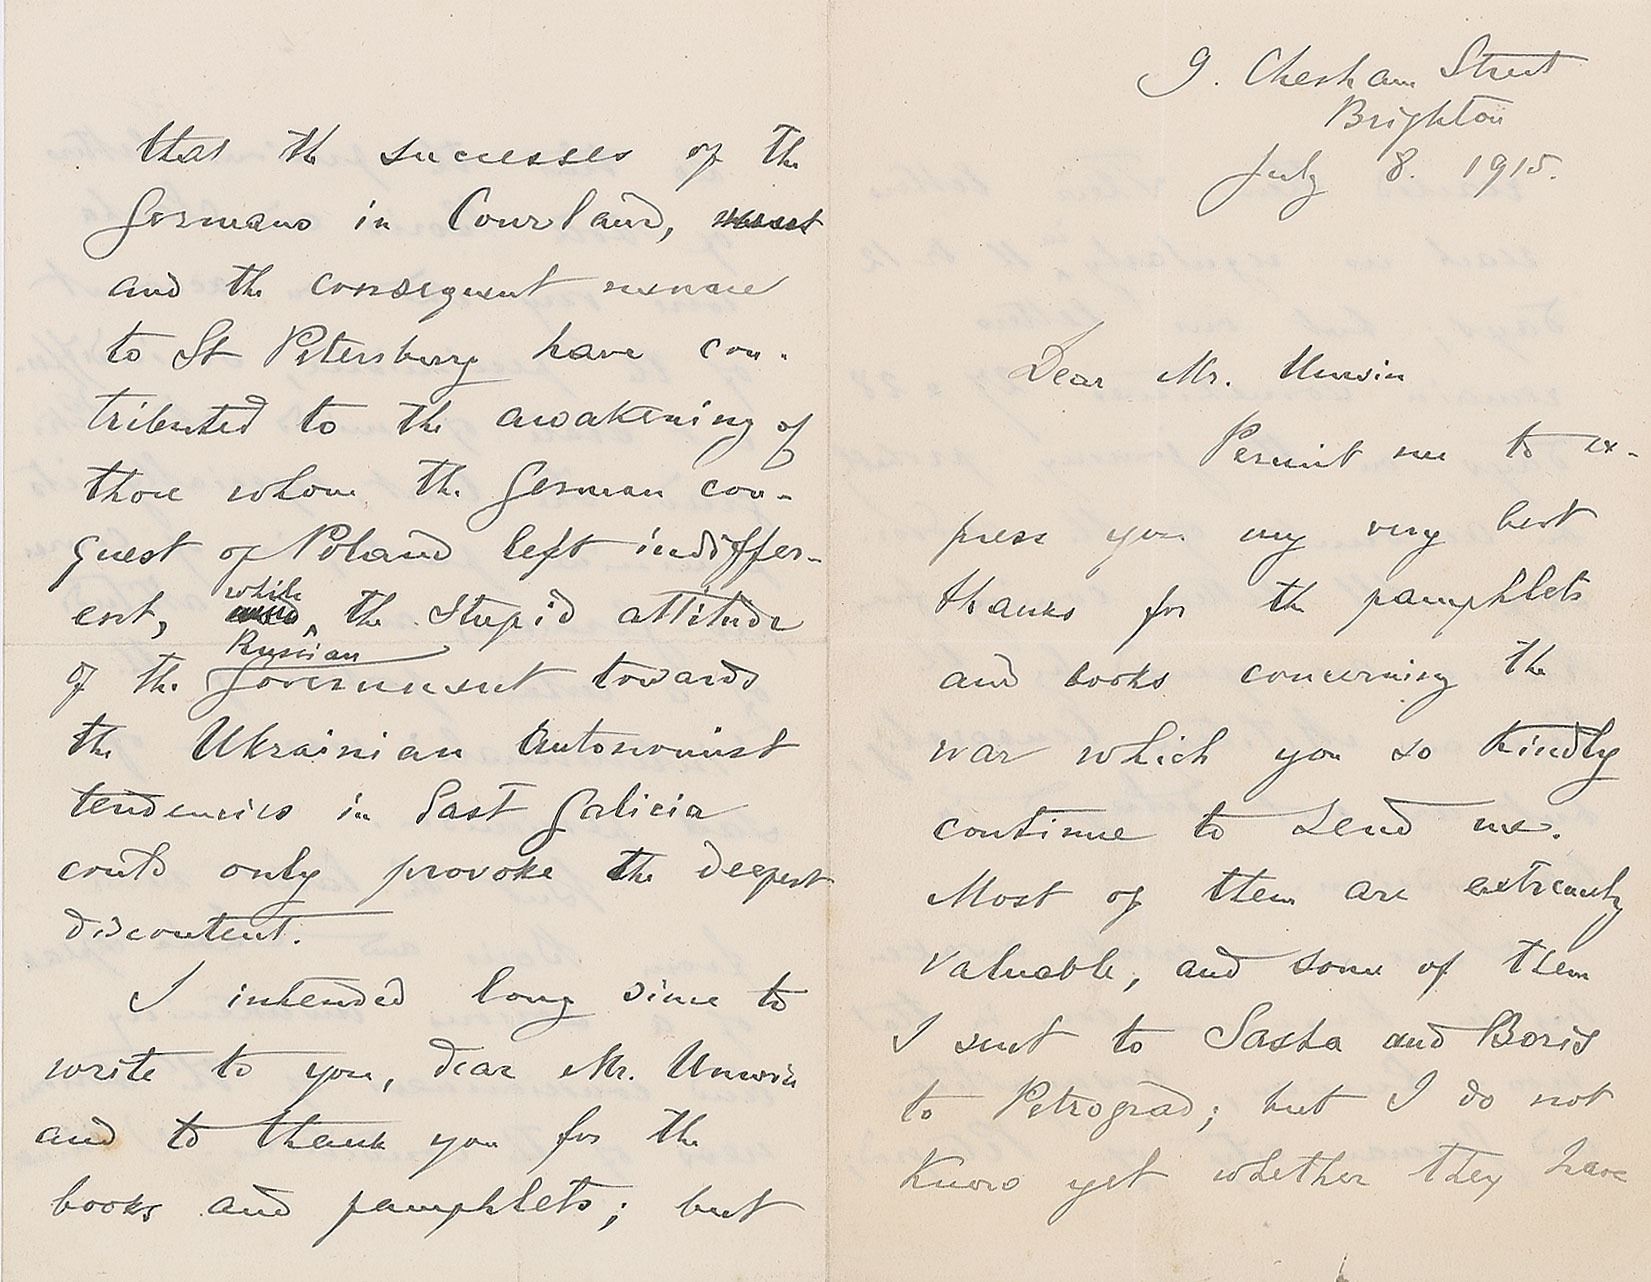 9. Chesham Street
Brighton
July 8. 1915.
Dear Mr. Unwin
Permit me to ex-
press you my very best
thanks for the pamphlets
and books concerning the
war which you so kindly
continue to send me.
Most of them are extremely
valuable, and some of them
I sent to Sasha and Boris
to Petrograd; but I do not
know yet whether they have
that the successes of the
Germans in Courland,
and the consequent menace
to St Petersburg have con-
tributed to the awakening of
those whom the German con-
quest of Poland left indiffer-
ent, while the stupid attitude
of the Russian Government towards
the Ukrainian Autonomist
tendencies in East Galicia
could only provoke the deepest
discontent.
I intended long since to
write to you, dear Mr. Unwin
and to thank you for the
books and pamphlets; but